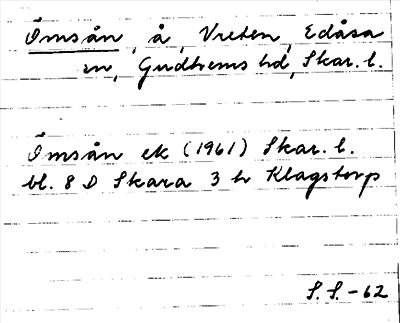 Ömsån, å, Vreten, Edåsa
sn, Gudhems hd, Skar. l.
Ömsån ek (1961) Skar. l.
bl. 8 D Skara 3 h Klagstorp
S. S. -62